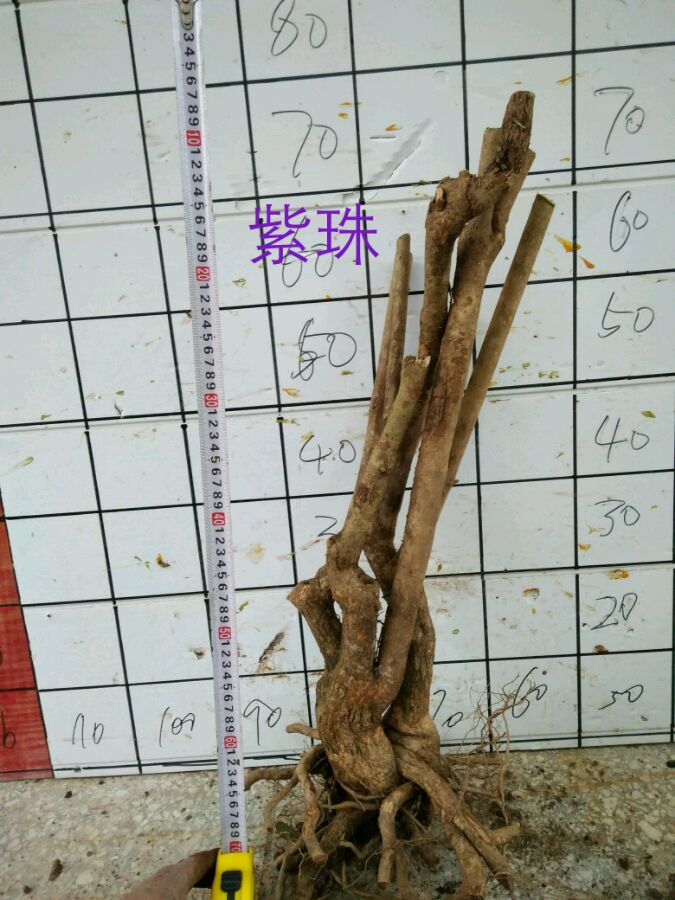 80
70 70
紫珠
60 60
50 50
40 40
30
20
110 100 90 60 50
3 4 5 6 7 8 9 10 1 2 3 4 5 6 7 8 9 20 1 2 3 4 5 6 7 8 9 30 1 2 3 4 5 6 7 8 9 40 1 2 3 4 5 6 7 8 9 50 1 2 3 4 5 6 7 8 9 60 1 2 3 4 5 6 7 8 9 70